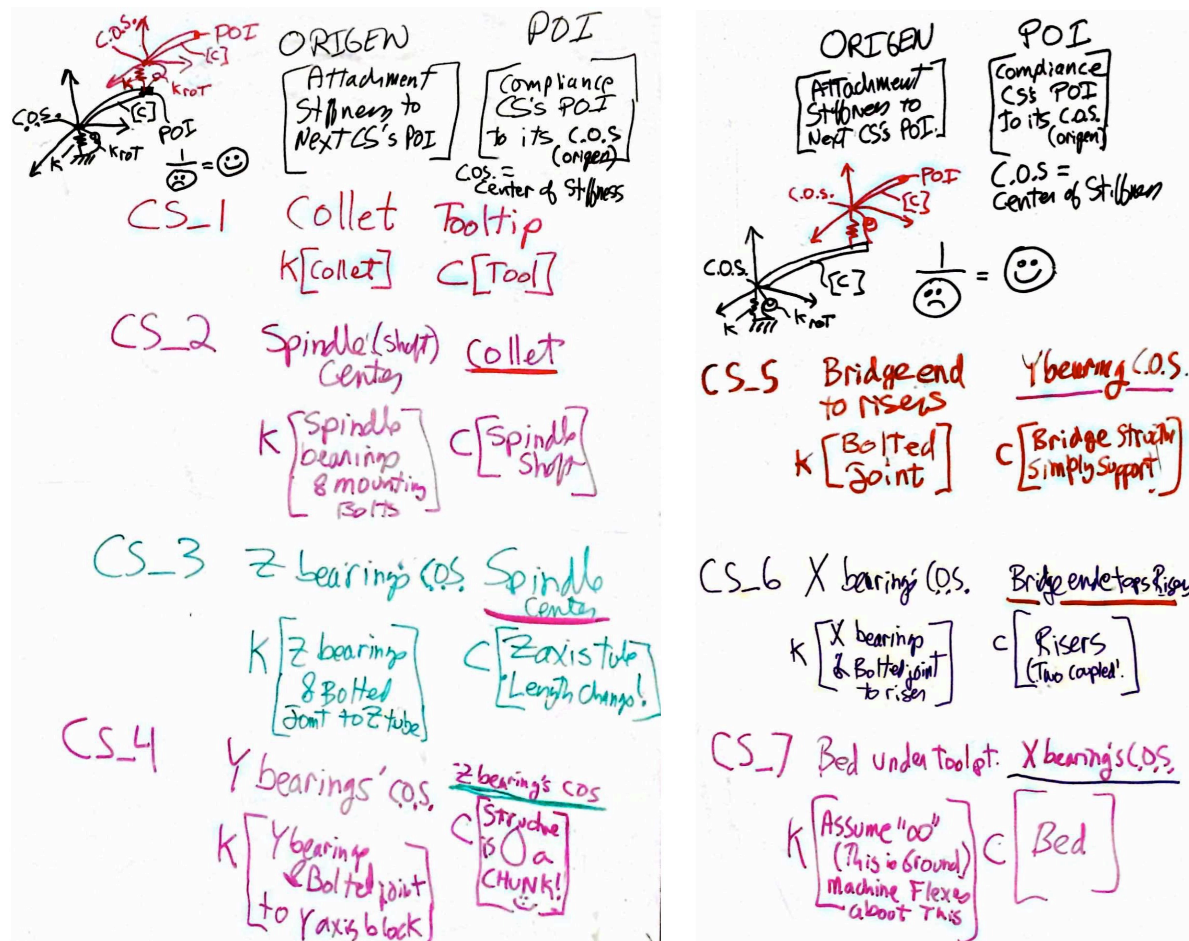 C.O.S.
POI
[C]
K
KROT
C.O.S.
[C]
POI
K
KROT
1
=
ORIGEN
Attachment
Stiffness to
Next CS's POI
POI
Compliance
CS's POI
to its C.O.S
(origen)
COS. =
Center of Stiffness
CS_1 Collet Tooltip
K[Collet] C[Tool]
CS_2 Spindle (shaft) Collet
Center
K[Spindle
bearings
& mounting
Bolts]
C[Spindle
Shaft]
CS_3 Z bearing's COS. Spindle
Center
K[Z bearings
& Bolted
Joint to Z tube]
C[Z axis tube
Length change!]
CS_4 Y bearings' C.O.S. Z bearing's COS
K[Y bearings
& Bolted joint
to Y axis block]
C[Structure
is a
CHUNK!]
ORIGEN
Attachment
Stiffness to
Next CS's POI.
POI
Compliance
CS's POI
to its C.O.S.
(origen)
C.O.S =
Center of Stiffness
C.O.S.
POI
[C]
C.O.S.
[C]
K
KROT
1
=
CS_5 Bridge end Y bearing C.O.S.
to risers
K[Bolted
Joint]
C[Bridge Structure
Simply Support]
CS_6 X bearing's C.O.S. Bridge ende tops Risers
K[X bearings
& Bolted joint
to riser]
C[Risers
(Two coupled!]
CS_7 Bed under toolpt. X bearing's C.O.S.
K[Assume "∞"
(This is Ground)
machine Flexes
about This]
C[Bed]